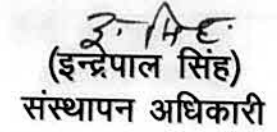 (इन्द्रपाल सिंह)
संस्थापन अधिकारी